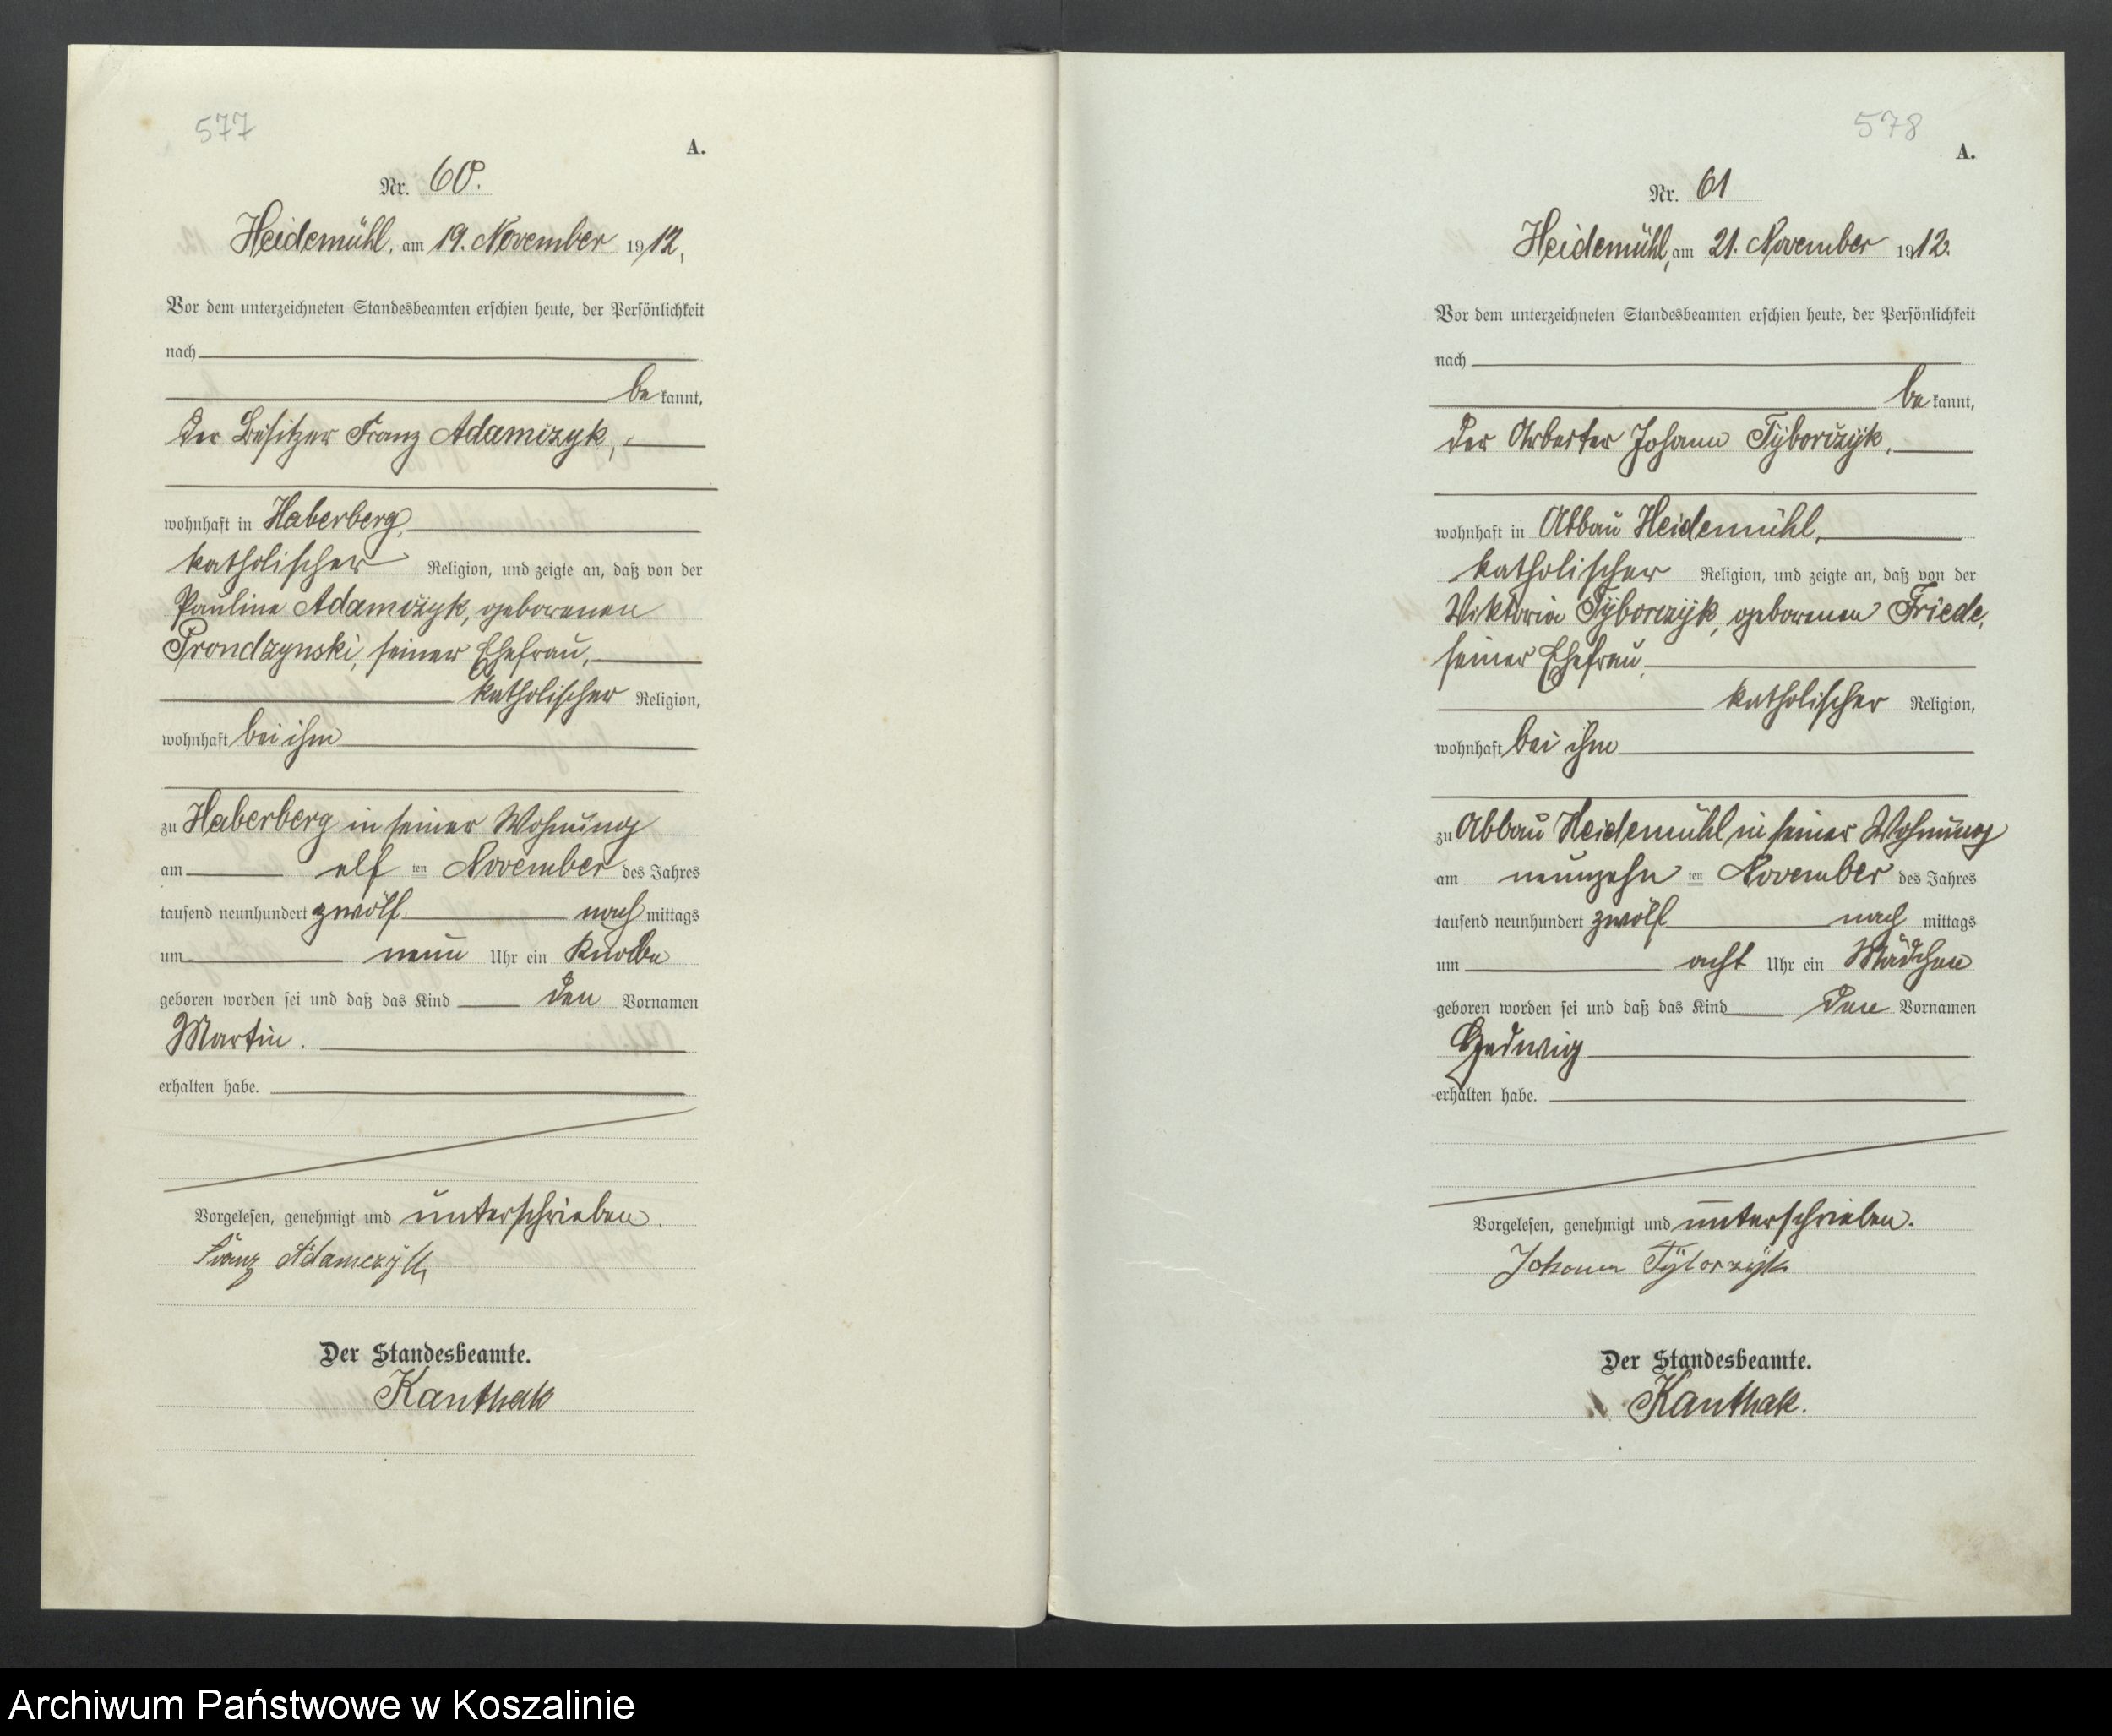 577
A.
Nr. 60.
Heidemühl, am 19. November 1912,
Vor dem unterzeichneten Standesbeamten erschien heute, der Persönlichkeit
nach
be kannt,
der Besitzer Franz Adamczyk,
wohnhaft in Haberberg,
katholischer Religion, und zeigte an, daß von der
Pauline Adamczyk, geborenen
Prondzynski, seiner Ehefrau,
katholischer Religion,
wohnhaft bei ihm
zu Haberberg in seiner Wohnung
am elf ten November des Jahres
tausend neunhundert zwölf nach mittags
um neun Uhr ein Knabe
geboren worden sei und daß das Kind den Vornamen
Martin.
erhalten habe.
Vorgelesen, genehmigt und unterschrieben.
Franz Adamczyk
Der Standesbeamte.
Kanthak
578
A.
Nr. 61
Heidemühl, am 21. November 1912.
Vor dem unterzeichneten Standesbeamten erschien heute, der Persönlichkeit
nach
be kannt,
der Arbeiter Johann Tyborczyk,
wohnhaft in Abbau Heidemühl,
katholischer Religion, und zeigte an, daß von der
Viktoria Tyborczyk, geborenen Friede,
seiner Ehefrau,
katholischer Religion,
wohnhaft bei ihm
zu Abbau Heidemühl in seiner Wohnung
am neunzehn ten November des Jahres
tausend neunhundert zwölf nach mittags
um acht Uhr ein Mädchen
geboren worden sei und daß das Kind den Vornamen
Hedwig
erhalten habe.
Vorgelesen, genehmigt und unterschrieben.
Johann Tyborzyk
Der Standesbeamte.
Kanthak.
Archiwum Państwowe w Koszalinie